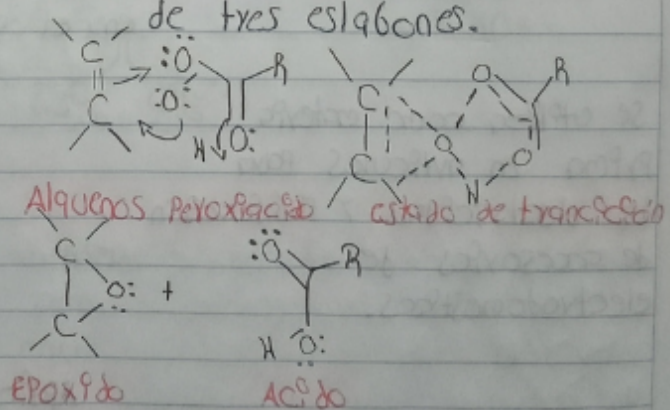 de tres eslabones.
C :Ö R
:O:
C H O:
O R
C
O
C O
H
Alquenos Peroxiacido Estado de trancicion
C :Ö R
O: +
C H O:
Epoxido Acido